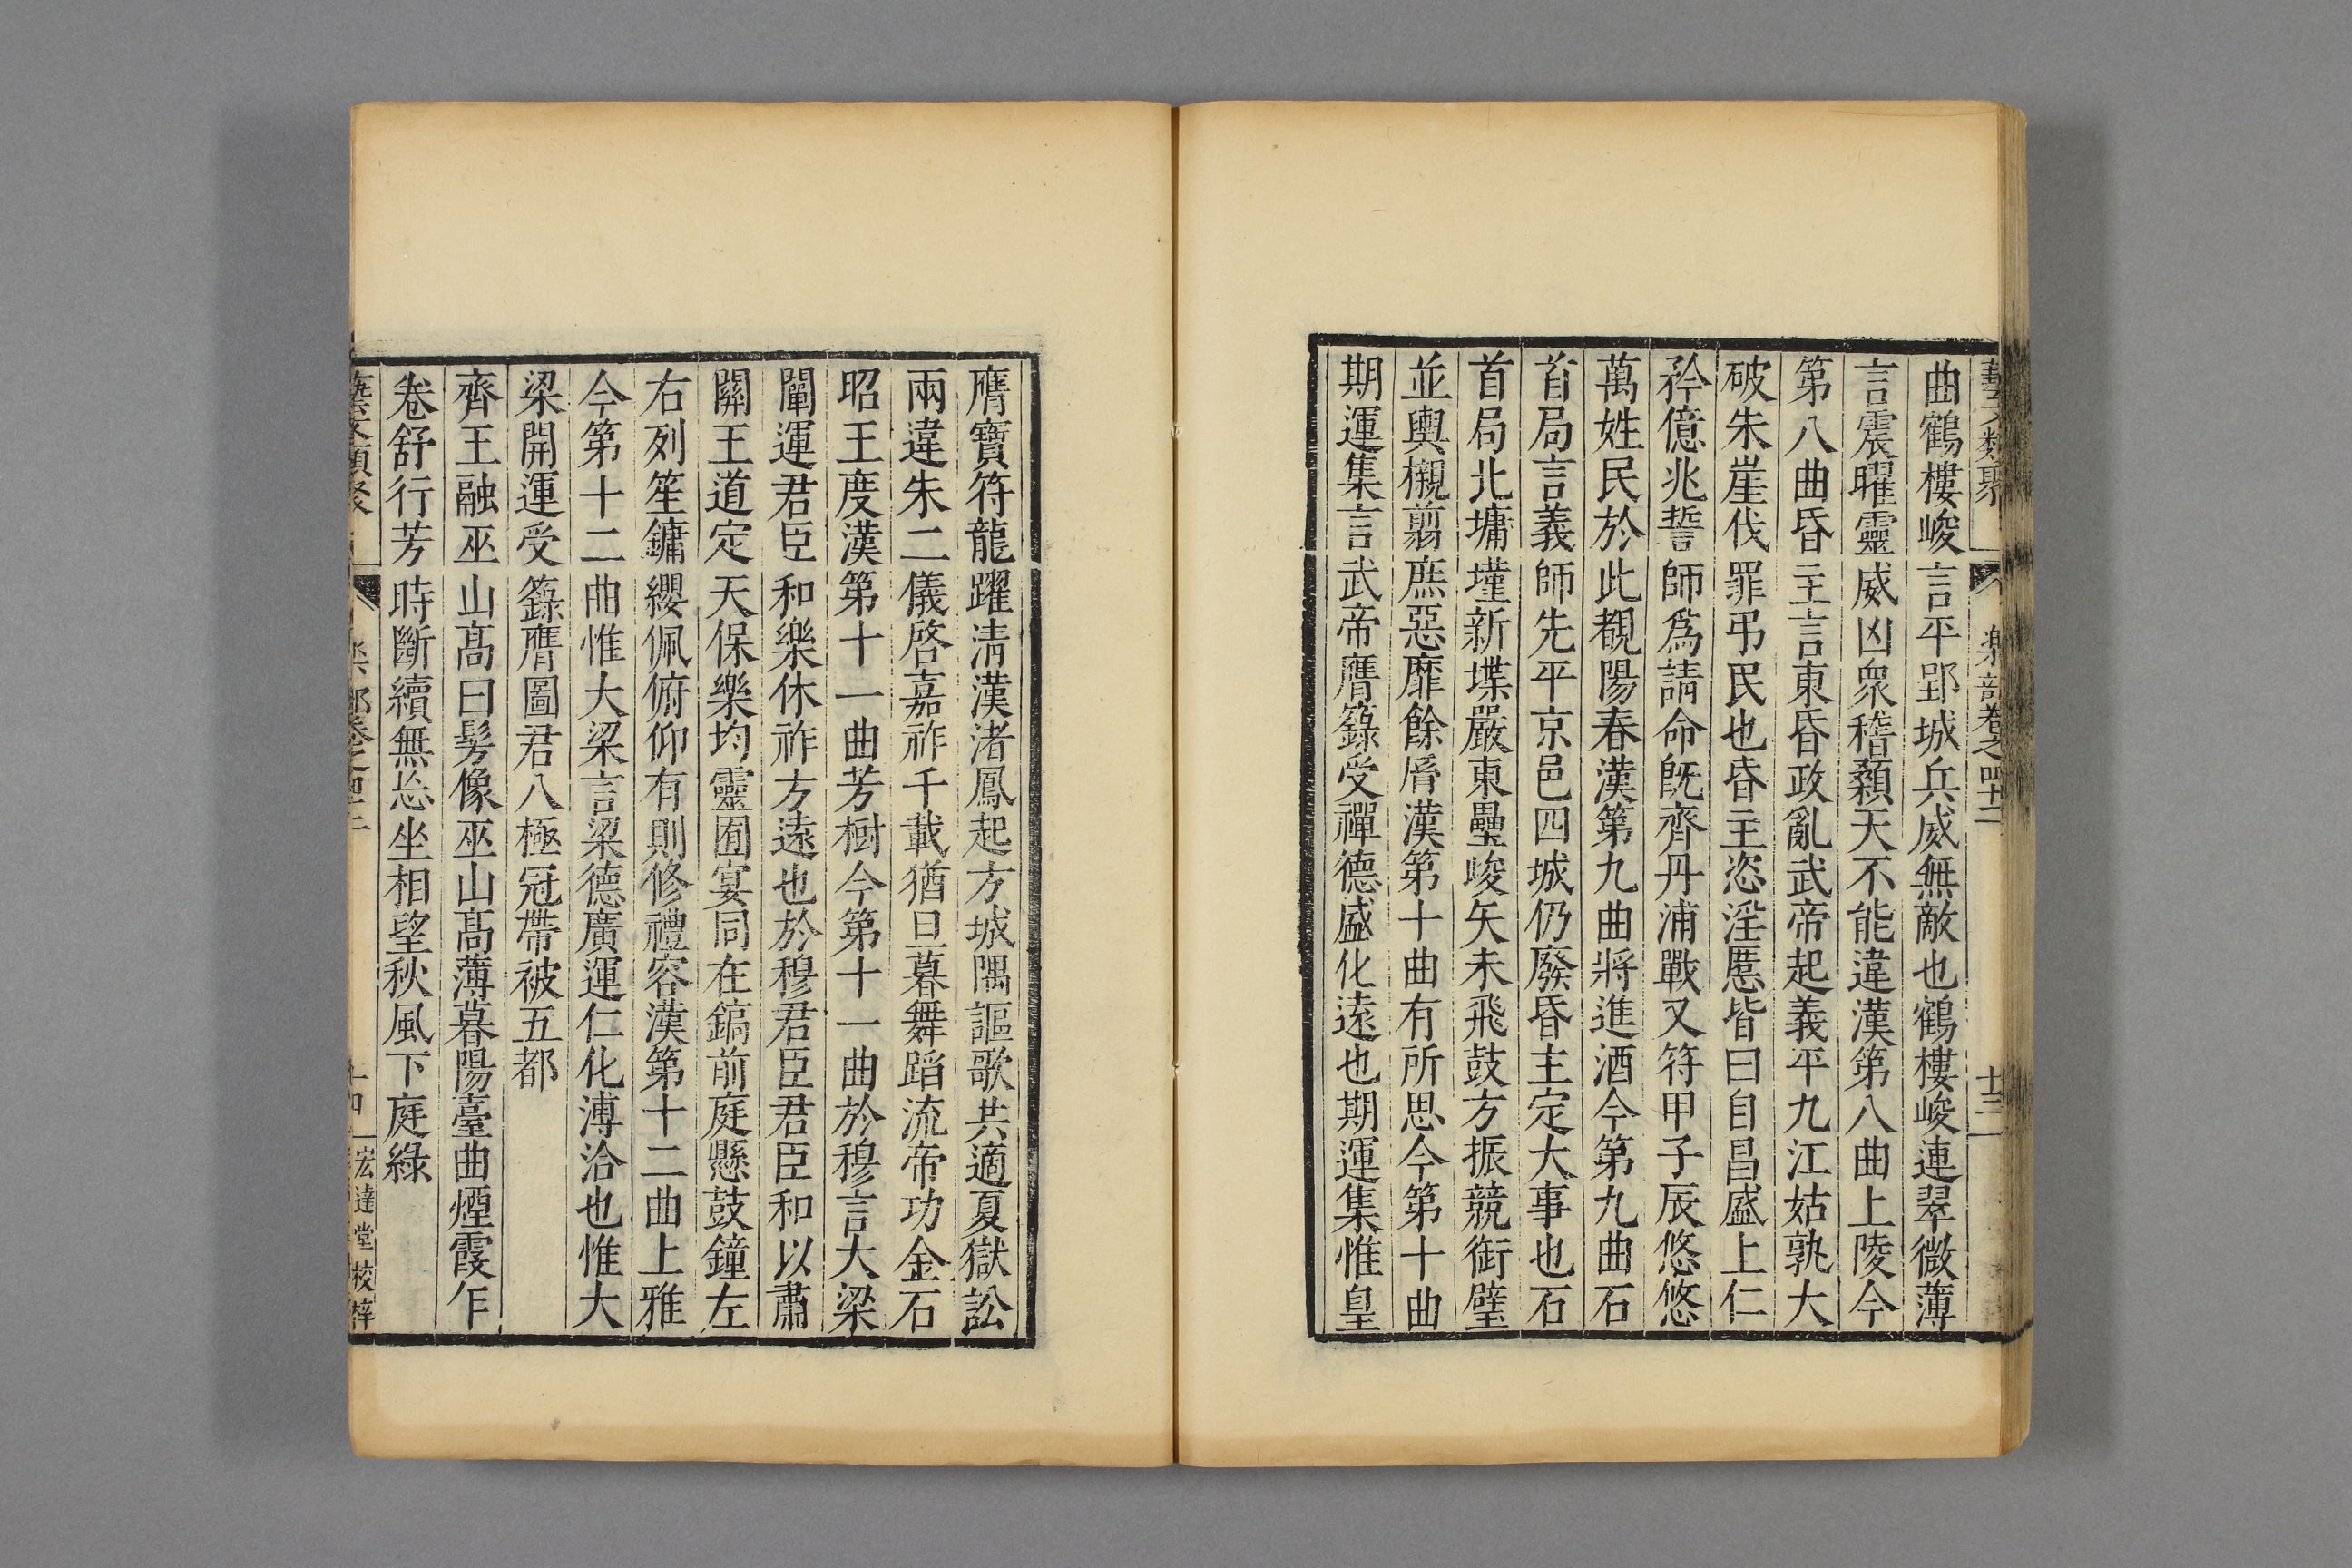 藝文類聚 樂部卷之四十二 十三
曲鶴樓峻言平郢城兵威無敵也鶴樓峻連翠微薄
言震曜靈威凶衆稽顙天不能違漢第八曲上陵今
第八曲昏主言東昏政亂武帝起義平九江姑孰大
破朱崖伐罪弔民也昏主恣淫慝皆曰自昌盛上仁
矜億兆誓師爲請命既齊丹浦戰又符甲子辰悠悠
萬姓民於此覩陽春漢第九曲將進酒今第九曲石
首局言義師先平京邑四城仍廢昏主定大事也石
首局北墉墐新堞嚴東壘峻矢未飛鼓方振競銜璧
並輿櫬翦庶惡靡餘脣漢第十曲有所思今第十曲
期運集言武帝膺籙受禪德盛化遠也期運集惟皇
膺寶符龍躍清漢渚鳳起方城隅謳歌共適夏獄訟
兩違朱二儀啓嘉祚千載猶旦暮舞蹈流帝功金石
昭王度漢第十一曲芳樹今第十一曲於穆言大梁
闡運君臣和樂休祚方遠也於穆君臣君臣和以肅
關王道定天保樂均靈囿宴同在鎬前庭懸鼓鐘左
右列笙鏞纓佩俯仰有則修禮容漢第十二曲上雅
今第十二曲惟大梁言梁德廣運仁化溥洽也惟大
梁開運受籙膺圖君八極冠帶被五都
齊王融巫山高曰髣像巫山高薄暮陽臺曲煙霞乍
卷舒行芳時斷續無怂坐相望秋風下庭綠
藝文類聚 卷之四十二 十四 宏達堂校梓